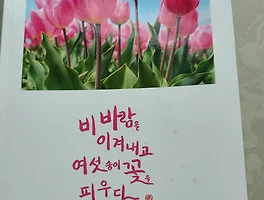 비바람을
이겨내고
여섯 송이 꽃을
피우다